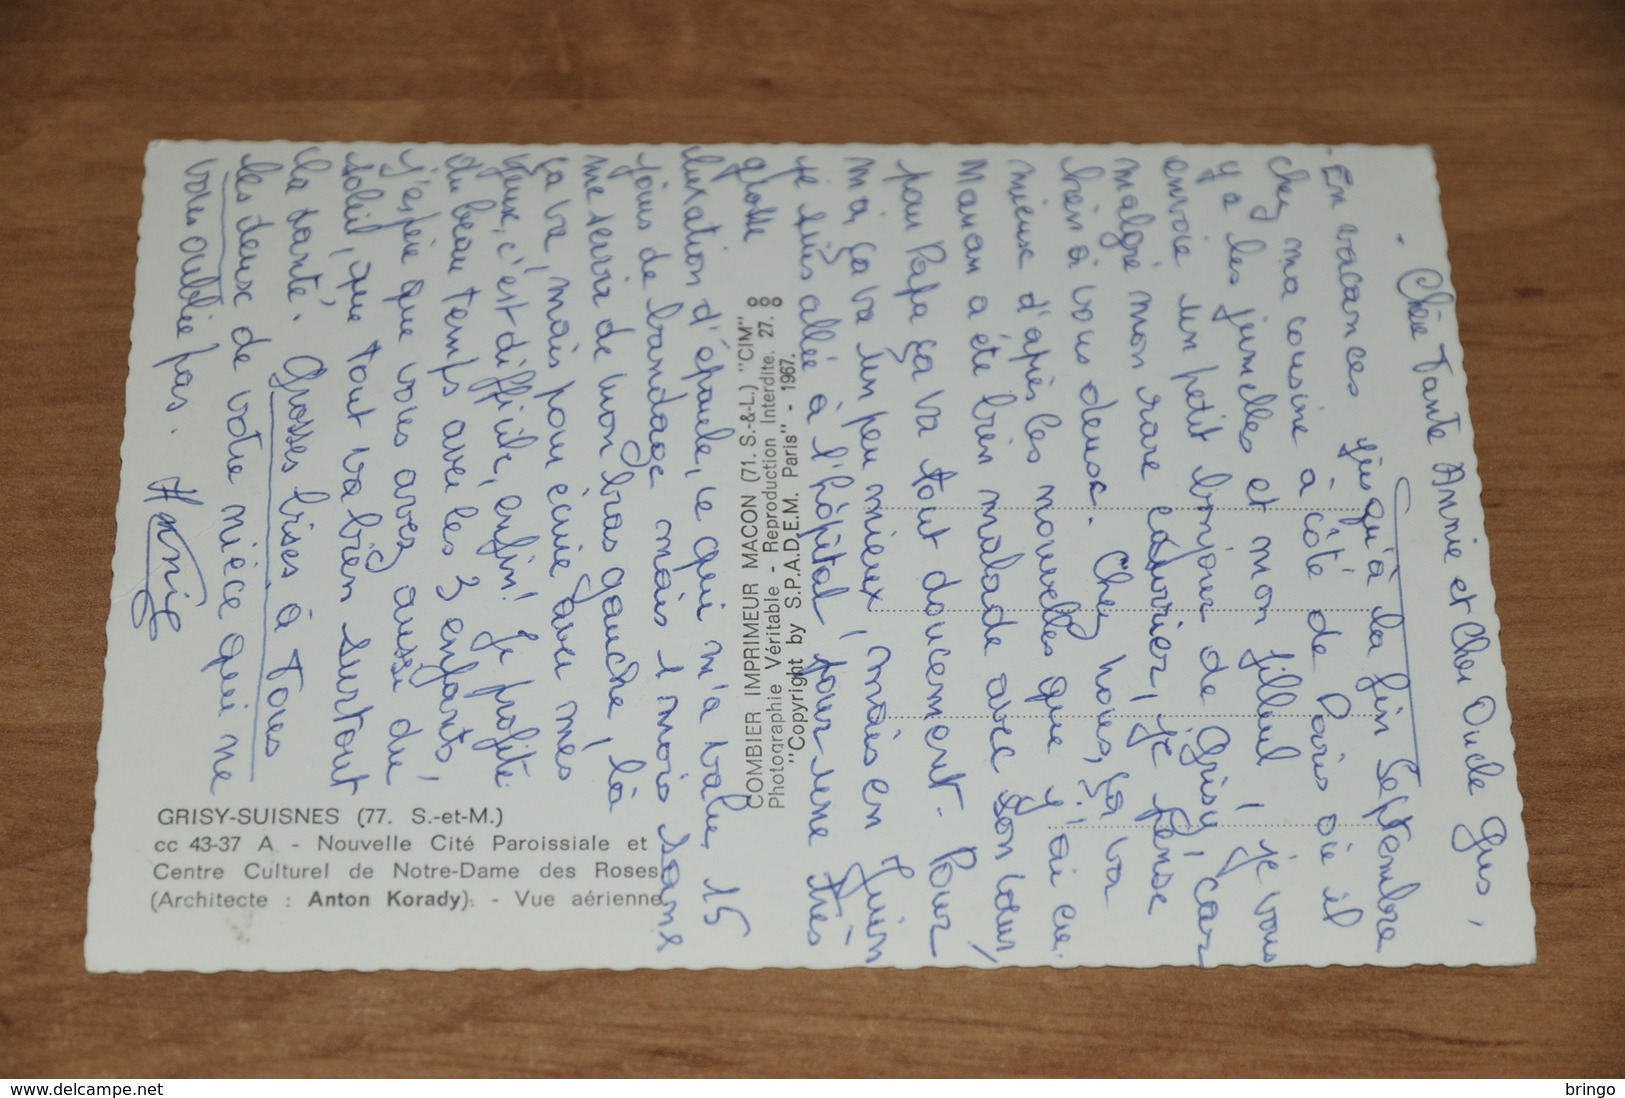 - Chère Tante Annie et Cher Oncle Gus,
- En vacances jusqu'à la fin Septembre
chez ma cousine à côté de Paris où il
y a les jumelles et mon filleul, je vous
envoie un petit bonjour de Grisy, car
malgré mon rare courrier, je pense
bien à vous deux. Chez nous, ça va
mieux d'après les nouvelles que j'ai eu.
Maman a été bien malade avec son cœur,
pour Papa ça va tout doucement. Pour
moi, ça va un peu mieux, mais en Juin
je suis allée à l'hôpital pour une très
grosse
luxation d'épaule, ce qui m'a valu 15
jours de bandage mais 1 mois sans
me servir de mon bras gauche, là
ça va, mais pour écrire avec mes
yeux, c'est difficile, enfin! Je profite
du beau temps avec les 3 enfants,
j'espère que vous avez aussi du
soleil, que tout va bien surtout
la santé. Grosses bises à tous
les deux de votre nièce qui ne
vous oublie pas. Annie
COMBIER IMPRIMEUR MACON (71. S.-&-L.) "CIM"
Photographie Véritable - Reproduction Interdite. 27. 8
"Copyright by S.P.A.D.E.M. Paris" - 1967.
GRISY-SUISNES (77. S.-et-M.)
cc 43-37 A - Nouvelle Cité Paroissiale et
Centre Culturel de Notre-Dame des Roses
(Architecte : Anton Korady). - Vue aérienne
www.delcampe.net
bringo